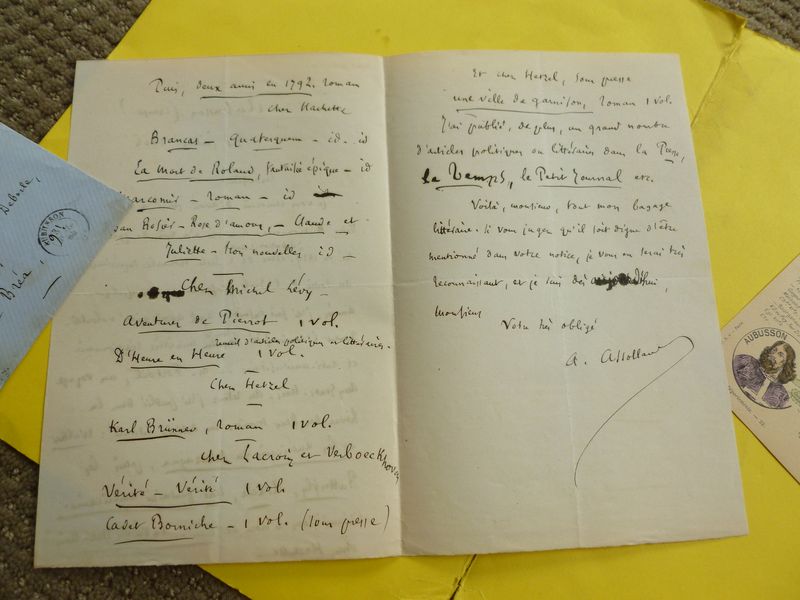 Puis, deux amis en 1792. roman
chez Hachette
Brancas - quaterquem - id. id
La Mort de Roland, fantaisie épique - id
Marcomir - roman - id
Jean Rosier - Rose d'amour, - Claude et
Juliette - trois nouvelles id -
Chez Michel Lévy -
Aventures de Pierrot 1 vol.
recueil d'articles politiques et littéraires.
D'Heure en Heure 1 Vol.
Chez Hetzel
Karl Brünner, roman 1 vol.
chez Lacroix et Verboeckhoven
Vérité - Vérité 1 vol.
Cadet Borniche - 1 vol. (sous presse)
Et chez Hetzel, sous presse
une ville de garnison, roman 1 vol.
J'ai publié, de plus, un grand nombre
d'articles politiques ou littéraires dans la Presse,
le Temps, le Petit Journal etc.
Voilà, monsieur, tout mon bagage
littéraire. Si vous jugez qu'il soit digne d'être
mentionné dans votre notice, je vous en serai très
reconnaissant, et je suis dès aujourd'hui,
Monsieur
Votre très obligé
A. Assollant
AUBUSSON
Bréa,
AUBUSSON